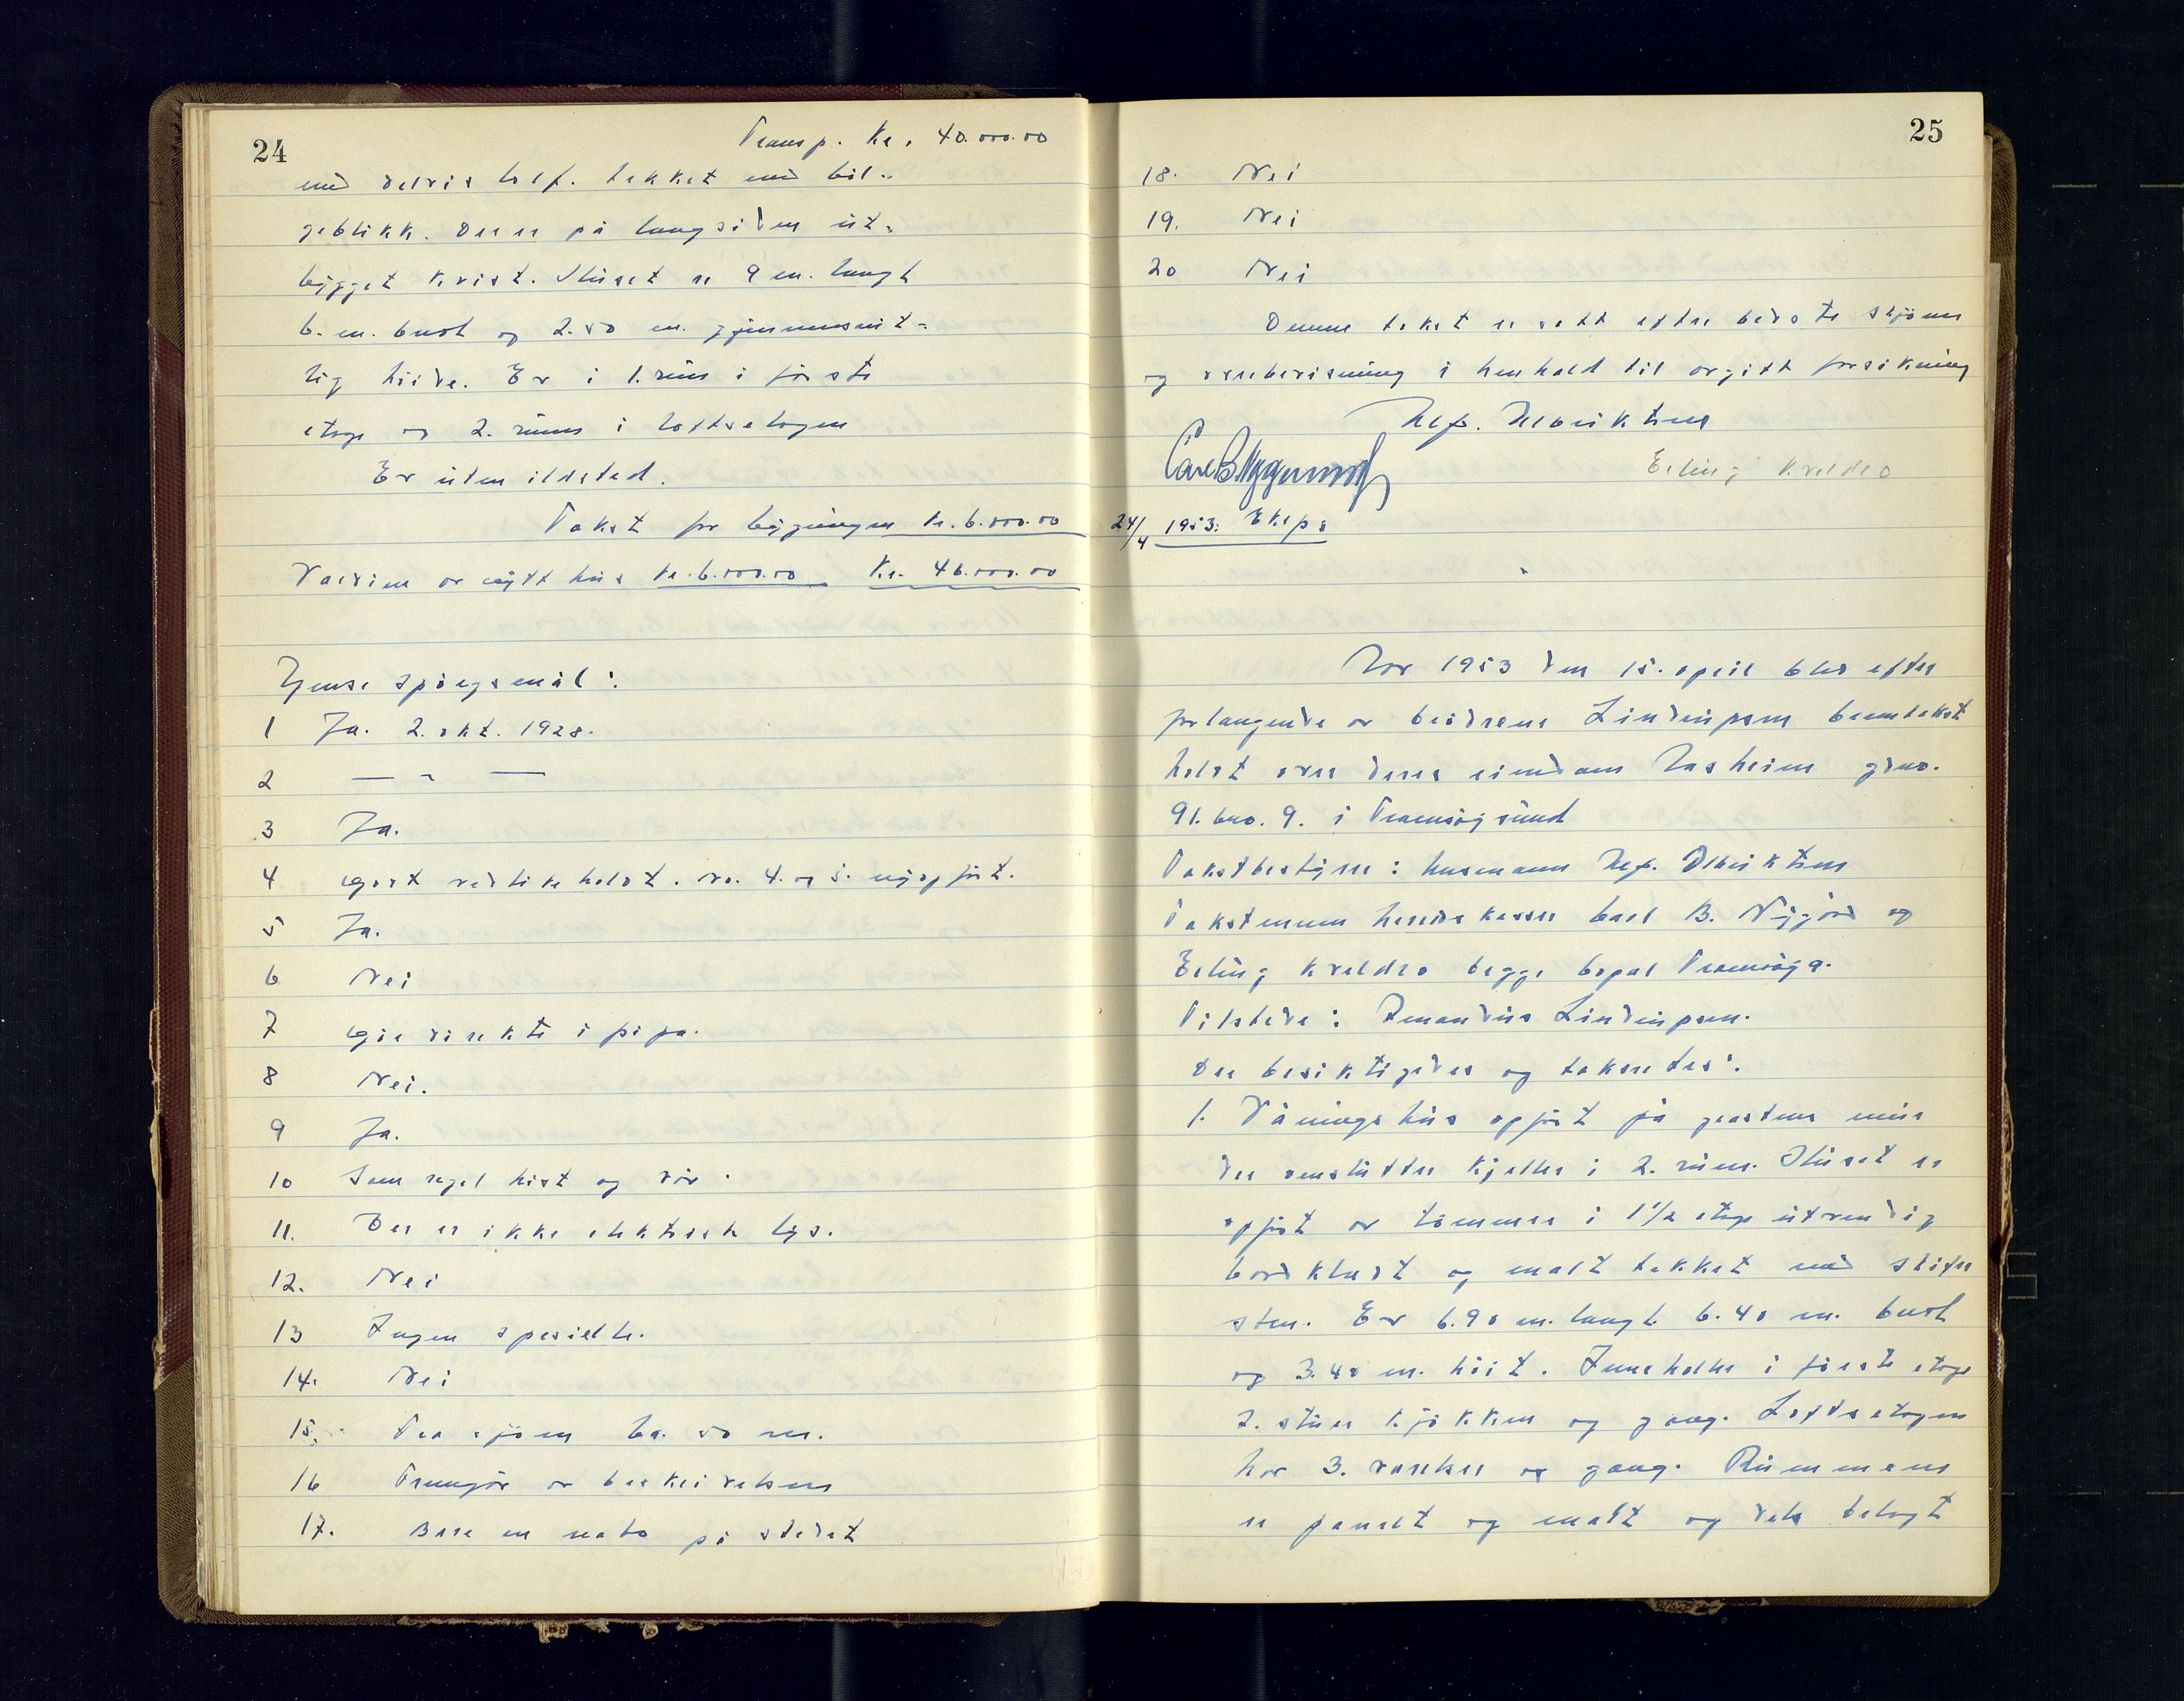 24
Transp. Kr. 40.000.00
med delvis loft. tekket medböl-
geblikk. Der er på langsiden ut-
bygget kvist. Huset er 9 m. langt
6. m. bredt og 2.50 m. gjennemsnit-
lig höide. Er i 1. rum i første
etage og 2. rum i loftsetagen
Er uten ildsted.
Takst for bygningen kr. 6.000.00
Værdien av nytt hus kr. 6.000.00 Kr. 46.000.00
Gjense spörgsmål:
1 Ja. 2. okt. 1928.
2 — " —
3 Ja.
4 Godt vedlikeholdt. no. 4. og 5. nyopfört.
5 Ja.
6 Nei
7 Går direkte i pipa.
8 Nei.
9 Ja.
10 Som regel höst og vår.
11. Der er ikke elektrisk lys.
12. Nei
13 Ingen spesielle.
14. Nei
15. Fra sjöen ca. 50 m.
16 Fremgår av beskrivelsen
17. Bare en nabo på stedet
25
18. Nei
19. Nei
20 Nei
Denne takst er satt efter bedste skjönn
og overbevisning i henhold til avgitt forsikring
Alf. Albriktsen
Carl B Nygaard
Erling Kveldro
24/4 1953: Eksp:
Aar 1953 den 15. april blev efter
forlangende av brödrene Lindrupsen branntakst
holdt over deres eiendom Aasheim gno.
91. bno. 9. i Tromsøysund
Takstbestyrer: lensmann Alf. Albriktsen
Takstmenn herredskasser Carl B. Nygård og
Erling Kveldro begge bopæl Tromsøya.
Tilstede: Amandus Lindrupsen.
Der besiktigedes og takseredes:
1. Våningshus opfört på grastens mur
der omslutter kjeller i 2. rum. Huset er
opfört av tömmer i 1 1/2 etage utvendig
bordklædt og malt tekket med skifer
sten. Er 6.90 m. langt 6.40 m. bredt
og 3.40 m. höit. Inneholder i förste etage
2. stuer kjökken og gang. Loftsetagen
har 3. værelser og gang. Rummene
er panelt og malt og dels belagt